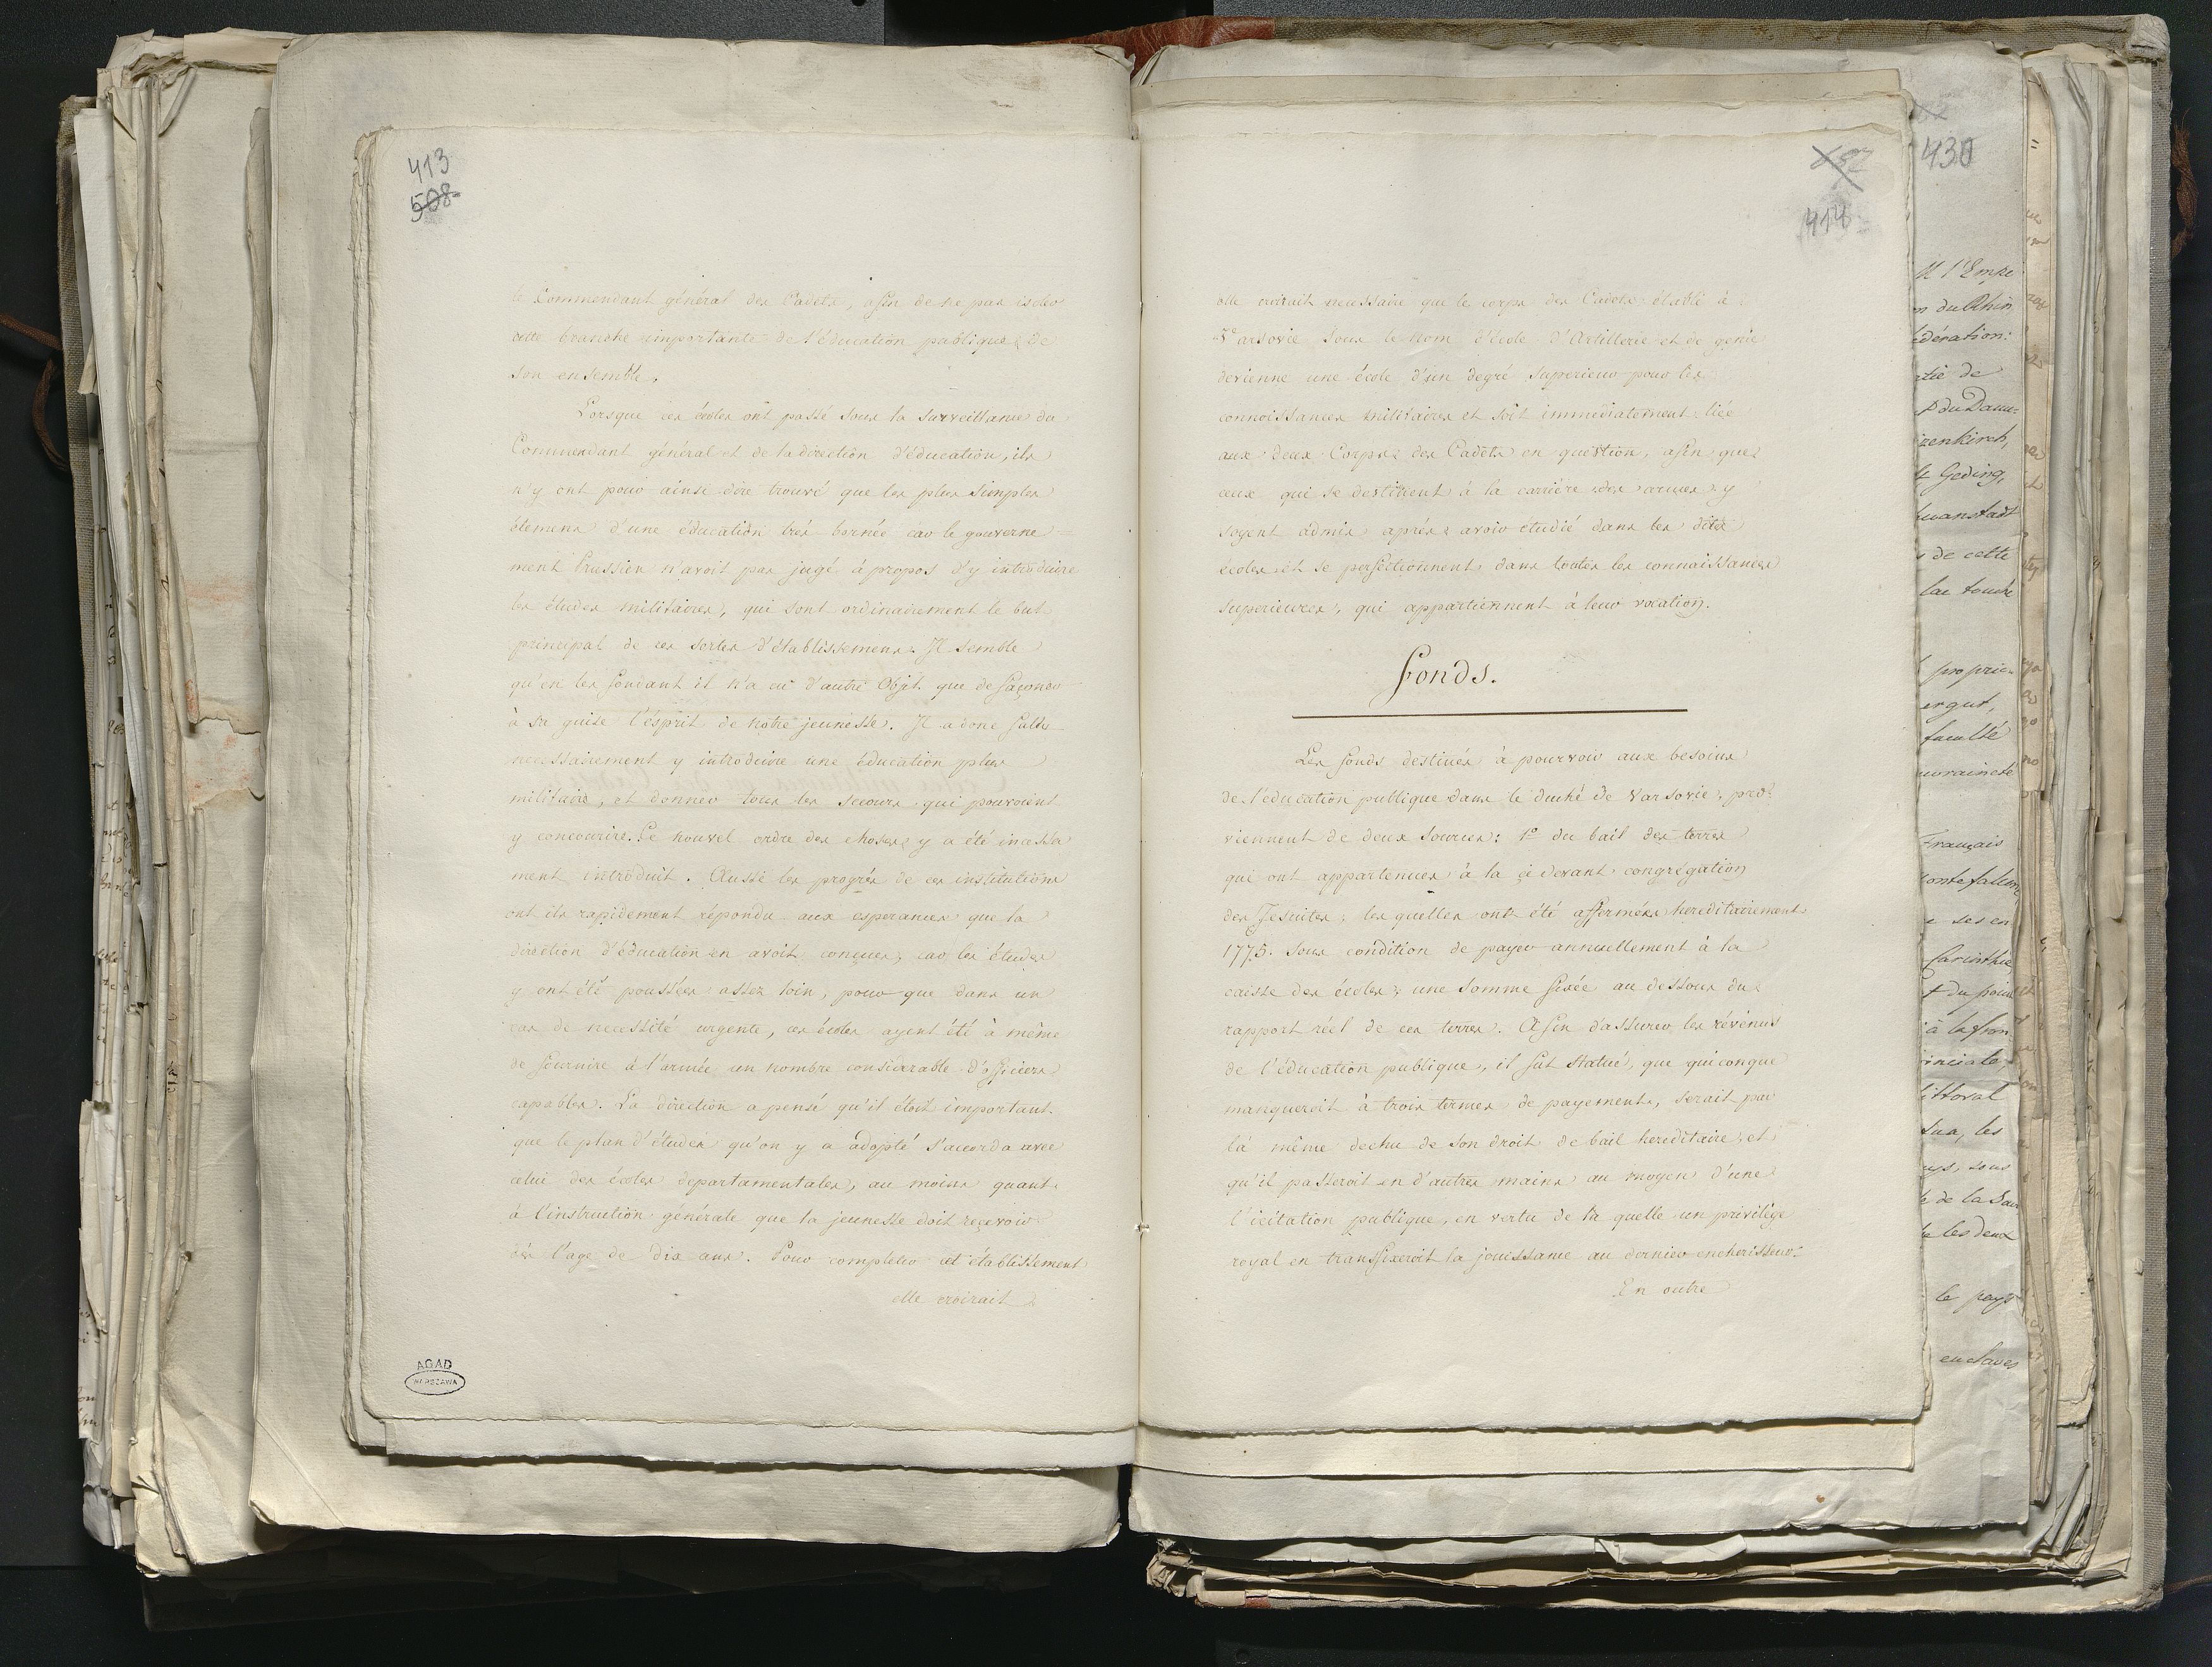 413
508
le Commendant général des Cadets, afin de ne pas isoler
cette branche importante de l'éducation publique de
son ensemble.
Lorsque ces écoles ont passé sous la surveillance du
Commendant général et de la direction d'éducation, ils
n'y ont pour ainsi dire trouvé que les plus simples
élemens d'une éducation très bornée car le gouverne
ment Prussien n'avoit pas jugé à propos d'y introduire
les études militaires, qui sont ordinairement le but
principal de ces sortes d'établissemens. Il semble
qu'en les fondant il n'a eu d'autre Objet que de façoner
à sa guise l'ésprit de notre jeunesse. Il a donc fallu
necessairement y introduire une éducation plus
militaire, et donner tous les secours qui pouvoient
y concourire. Ce nouvel ordre des choses y a été incessa
ment introduit. Aussi les progrés de ces institutions
ont ils rapidement répondu aux esperances que la
direction d'éducation en avoit conçues; car les études
y ont été poussées assez loin, pour que dans un
cas de necessité urgente, ces écoles ayent été à même
de fournire à l'armée un nombre considerable d'officiers
capables. La direction a pensé qu'il étoit important
que le plan d'études qu'on y a adopté s'accorda avec
celui des écoles departamentales, au moins quant
à l'instruction générale que la jeunesse doit reçevoir
dès l'age de dix ans. Pour completer cet établissement
elle croirait
AGAD
WARSZAWA
414
elle croirait necessaire que le corps des Cadets établi à
Varsovie sous le nom d'école d'Artillerie et de génie
devienne une école d'un degré superieur pour les
connoissances militaires et soit immediatement liée
aux deux Corps des Cadets en question, afin que
ceux qui se destinent à la carrière des armes y
soyent admis aprés avoir etudié dans les dites
écoles et se perfectionnent dans toutes les connaissances
superieures, qui appartiennent à leur vocation.
Fonds.
Les fonds destinés à pourvoir aux besoins
de l'éducation publique dans le duché de Varsovie, pro
viennent de deux sources: 1º du bail des terres
qui ont appartenues à la ci devant congrégation
des Jesuites; les quelles ont été affermées hereditairement
1775. sous condition de payer annuellement à la
caisse des écoles une somme fixée au dessous du
rapport réel de ces terres. Afin d'assurer les révénus
de l'éducation publique, il fut statué, que quiconque
manqueroit à trois termes de payements, serait par
là même dechu de son droit de bail hereditaire, et
qu'il passeroit en d'autres mains au moyen d'une
l'icitation publique, en vertu de la quelle un privilège
royal en transfixeroit la jouissance au dernier encherisseur.
En outre
430
dération:
tie de
de cette
faculté
Français
littoral
le pays
enclaves